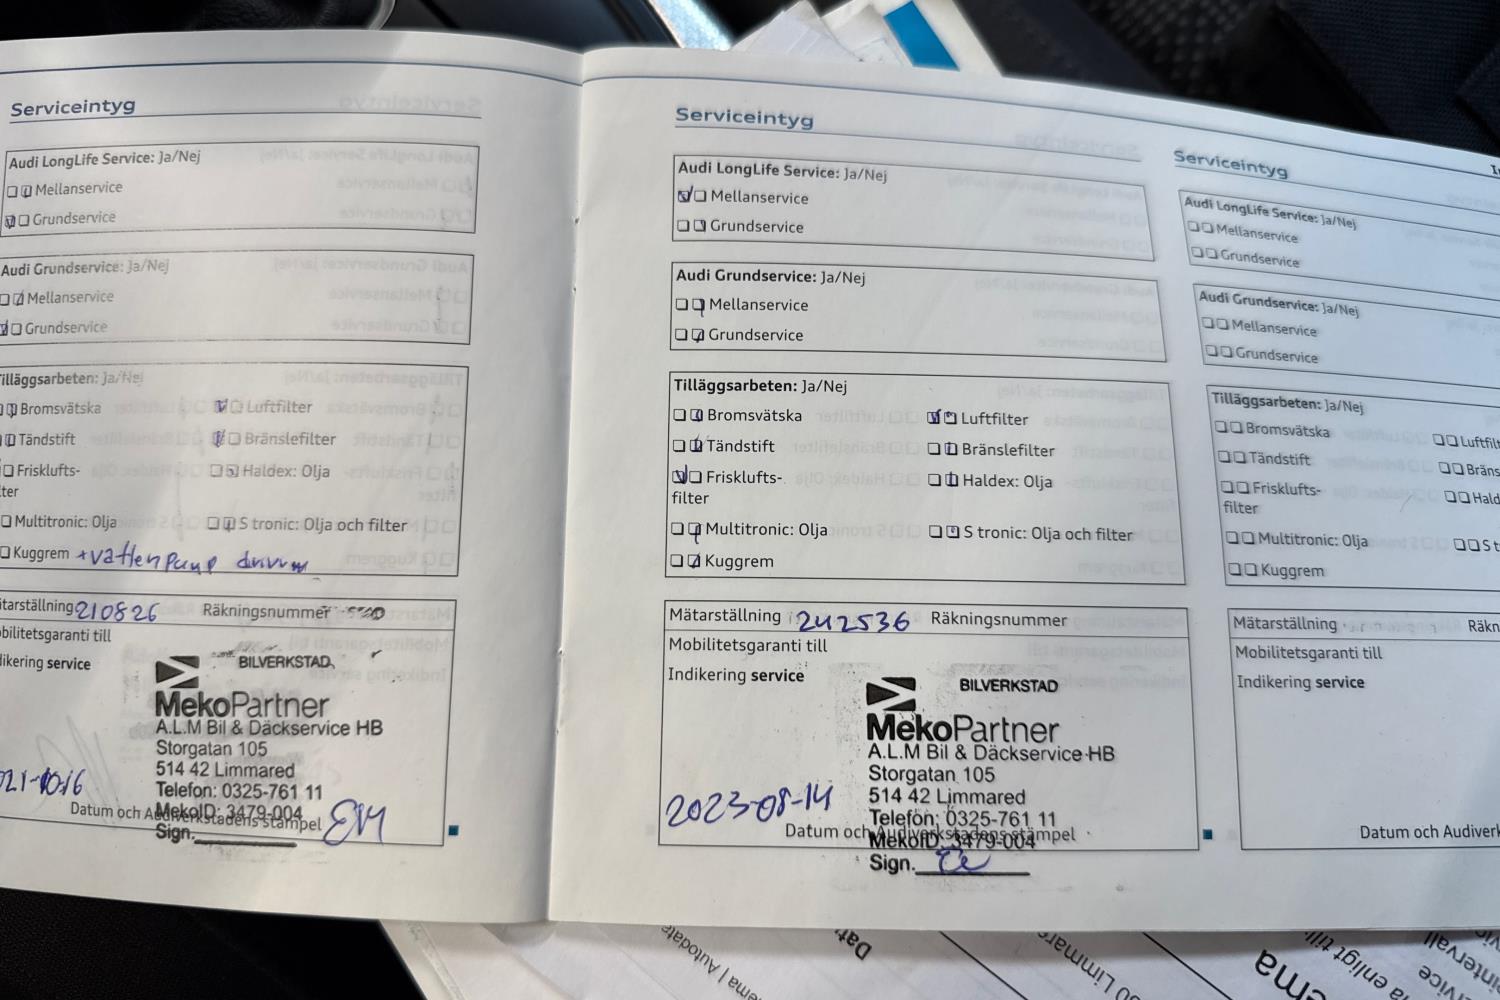 Serviceintyg
Audi LongLife Service: Ja/Nej
Mellanservice
Grundservice
Audi Grundservice: Ja/Nej
Mellanservice
Grundservice
Tilläggsarbeten: Ja/Nej
Bromsvätska Luftfilter
Tändstift Bränslefilter
Frisklufts- Haldex: Olja
Multitronic: Olja S tronic: Olja och filter
Kuggrem +vattenpump drivrem
210826 Räkningsnummer
till
service
BILVERKSTAD
MekoPartner
A.L.M Bil & Däckservice HB
Storgatan 105
514 42 Limmared
Telefon: 0325-761 11
MekoID: 3479-004
Datum och Audiverkstadens stämpel
Sign.
Serviceintyg
Audi LongLife Service: Ja/Nej
Mellanservice
Grundservice
Audi Grundservice: Ja/Nej
Mellanservice
Grundservice
Tilläggsarbeten: Ja/Nej
Bromsvätska Luftfilter
Tändstift Bränslefilter
Frisklufts- Haldex: Olja
filter
Multitronic: Olja S tronic: Olja och filter
Kuggrem
Mätarställning 242536 Räkningsnummer
Mobilitetsgaranti till
Indikering service
BILVERKSTAD
MekoPartner
A.L.M Bil & Däckservice HB
Storgatan 105
514 42 Limmared
Telefon: 0325-761 11
2023-08-14
Datum och Audiverkstadens stämpel
MekoID: 3479-004
Sign.
Serviceintyg
Audi LongLife Service: Ja/Nej
Mellanservice
Grundservice
Audi Grundservice: Ja/Nej
Mellanservice
Grundservice
Tilläggsarbeten: Ja/Nej
Bromsvätska
Tändstift
Frisklufts-
filter
Multitronic: Olja
Kuggrem
Mätarställning
Mobilitetsgaranti till
Indikering service
Datum och